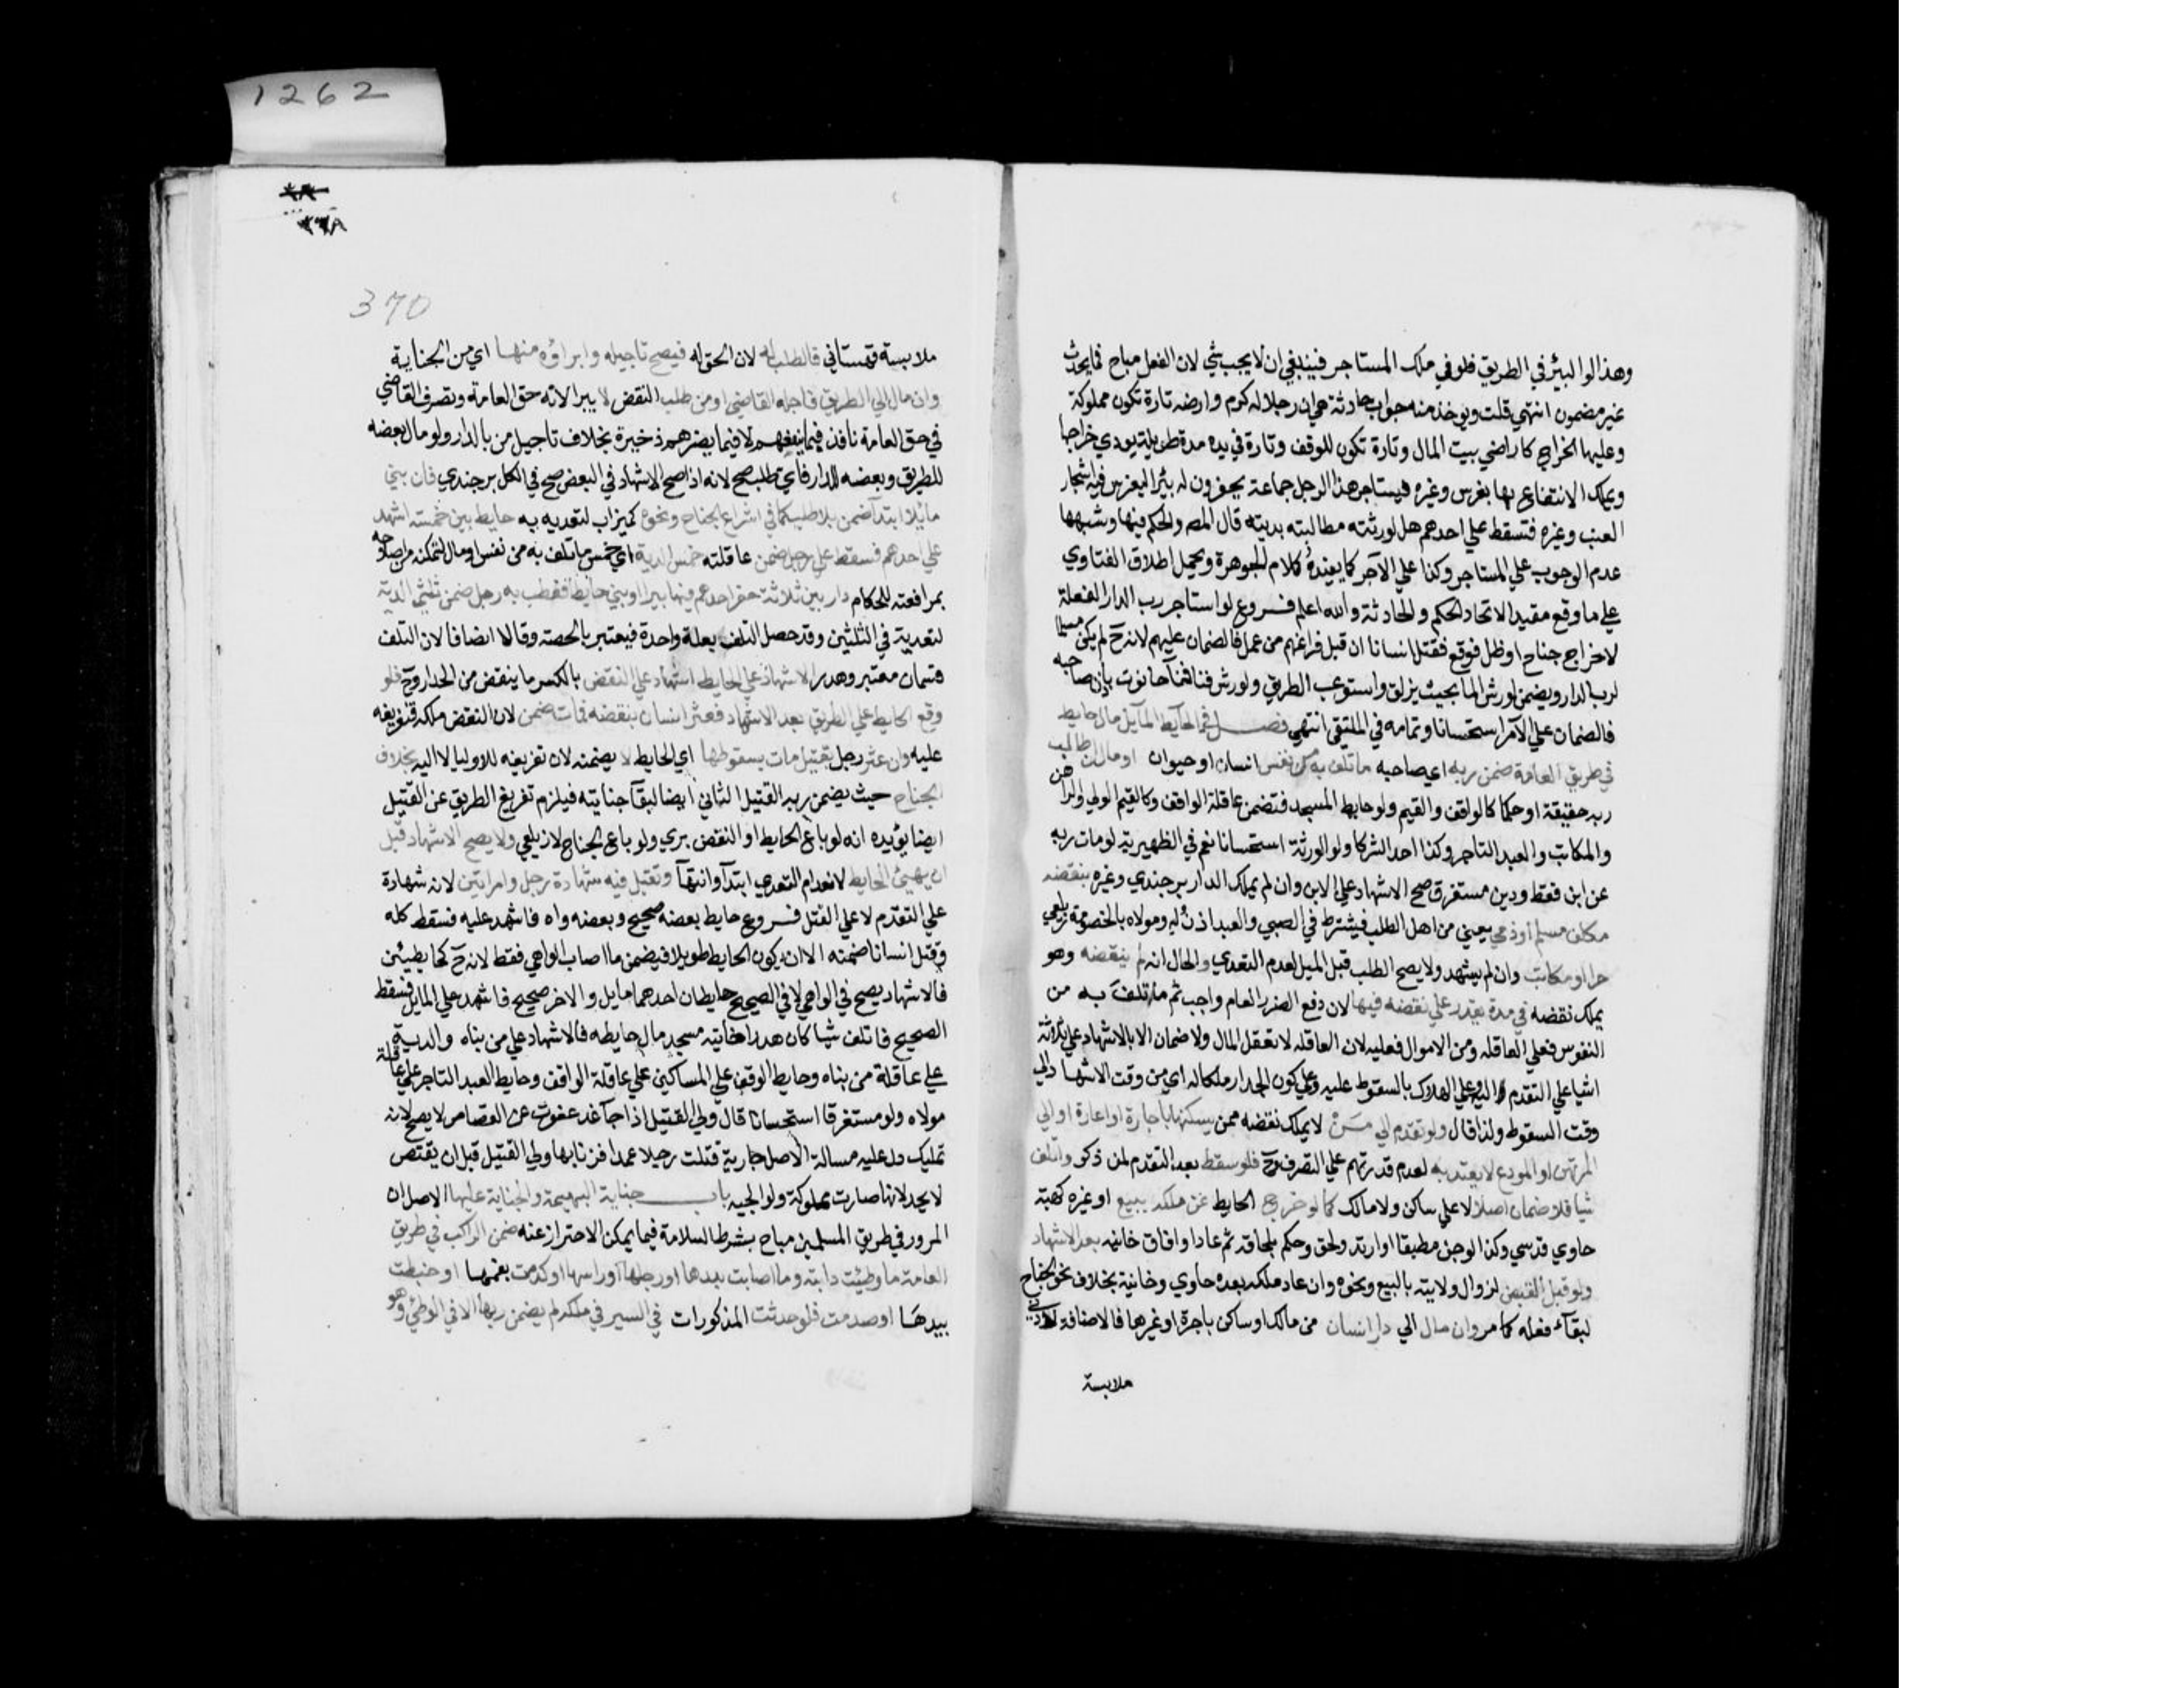 وهذا لو البئر في الطريق فلو في ملك المستاجر فينبغي ان لا يجب شي لان الفعل مباح فما يحدث
غير مضمون انتهي قلت ويوخذ منه جواب حادثة هي ان رجلا له كرم وارضه تارة تكون مملوكة
وعليها الخراج كاراضي بيت المال وتارة تكون للوقف وتارة في يده مدة طويلة يودي خراجها
ويملك الانتفاع بها بغرس وغيره فيستاجر هذا الرجل جماعة يحفرون له بئرا ليغرس فيه اشجار
العنب وغيره فتسقط علي احدهم هل لورثته مطالبته بديته قال المص والحكم فيها وشبهها
عدم الوجوب علي المستاجر وكذا علي الآجر كما يفيده كلام الجوهرة ويحمل اطلاق الفتاوي
علي ما وقع مقيدا لاتحاد الحكم والحادثة والله اعلم فروع لو استاجر رب الدار الفعلة
لاخراج جناح او ظل فوقع فقتل انسانا ان قبل فراغهم من عمل فالضمان عليهم لانه ح لم يكن مسلما
لرب الدار ويضمن لو رش الما بحيث يزلق واستوعب الطريق ولو رش فنا فنا حانوت باذن صاحبه
فالضمان علي الآمر استحسانا وتمامه في الملتقي انتهي فصل في الحآيط المآيل مال حايط
في طريق العامة ضمن ربه اي صاحبه ما تلف به من نفس انسان او حيوان او مال ان طالب
ربه حقيقة او حكما كالواقف والقيم ولو حايط المسجد فتضمن عاقلة الواقف وكالقيم الولي والراهن
والمكاتب والعبد التاجر وكذا احد الشركا ولو الورثة استحسانا نعم في الظهيرية لو مات ربه
عن ابن فقط ودين مستغرق صح الاشهاد علي الابن وان لم يملك الدار برجندي وغيره بنقضه
مكلف مسلم او ذمي يعني من اهل الطلب فيشترط في الصبي والعبد اذن وليه ومولاه بالخصومة زيلعي
حر او مكاتب وان لم يشهد ولا يصح الطلب قبل الميل لعدم التعدي والحال انه لم ينقضه وهو
يملك نقضه في مدة يقدر علي نقضه فيها لان دفع الضرر العام واجب ثم ما تلف به من
النفوس فعلي العاقله ومن الاموال فعليه لان العاقله لا تعقل المال ولا ضمان الا بالاشهاد علي ثلاثة
اشيا علي التقدم اليه وعلي الهلاك بالسقوط عليه وعلي كون الجدار ملكا له اي من وقت الاشهاد الي
وقت السقوط ولذا قال ولو تقدم الي مَنْ لا يملك نقضه ممن يسكنها باجارة او اعارة او الي
المرتهن او المودع لا يعتد به لعدم قدرتهم علي التصرف وح فلو سقط بعد التقدم لمن ذكر واتلف
شيا فلا ضمان اصلا لا علي ساكن ولا مالك كما لو خرج الحايط عن ملكه ببيع او غيره كهبة
حاوي قدسي وكذا لو جن مطبقا او ارتد ولحق وحكم بلحاقه ثم عاد او افاق خانيه بعد الاشهاد
ولو قبل القبض لزوال ولايته بالبيع ونحوه وان عاد ملكه بعده حاوي وخانية بخلاف نحو الجناح
لبقآء فعله كما مر وان مال الي دار انسان من مالك او ساكن باجرة او غيرها فالاضافة لادني
ملابسة
1262
٣٦٨
370
ملابسة قهستاني فالطلب له لان الحق له فيصح تاجيله وابراؤه منها اي من الجناية
وان مال الي الطريق فاجله القاضي او من طلب النقض لا يبرا لانه حق العامة وتصرف القاضي
في حق العامة نافذ فيما ينفعهم لا فيما يضرهم ذخيرة بخلاف تاجيل من بالدار ولو مال بعضه
للطريق وبعضه للدار فاي طلب صح لانه اذا صح الاشهاد في البعض صح في الكل برجندي فان بني
مايلا ابتدآ ضمن بلا طلب كما في اشراع الجناح ونحوه كميزاب لتعديه به حايط بين خمسة اشهد
علي احدهم فسقط علي رجل ضمن عاقلته خمس الدية اي خمس ما تلف به من نفس او مال لتمكنه من اصلاحه
بمرافعته للحكام دار بين ثلاثة حفر احدهم فيها بيرا او بني حايطا فعطب به رجل ضمن ثلثي الدية
لتعديه في الثلثين وقد حصل التلف بعلة واحدة فيعتبر بالحصه وقالا انصافا لان التلف
قسمان معتبر وهدر الاشهاد علي الحايط اشهاد علي النقض بالكسر ما ينقض من الجدار وح فلو
وقع الحايط علي الطريق بعد الاشهاد فعثر انسان بنقضه فمات ضمن لان النقض ملكه فتفريغه
عليه وان عثر رجل بقتيل مات بسقوطها اي الحايط لا يضمنه لان تفريغه للاوليا لا اليه بخلاف
الجناح حيث يضمن ربه القتيل الثاني ايضا لبقآ جنايته فيلزم تفريغ الطريق عن القتيل
ايضا يؤيده انه لو باع الحايط او النقض بري ولو باع الجناح لا زيلعي ولا يصح الاشهاد قبل
ان يهيئ الحايط لانعدام التعدي ابتدآ وانتهآ وتقبل فيه شهادة رجل وامراتين لانه شهادة
علي التقدم لا علي القتل فروع حايط بعضه صحيح وبعضه واه فاشهد عليه فسقط كله
وقتل انسانا ضمنه الا ان يكون الحايط طويلا فيضمن ما اصاب الواهي فقط لانه ح كحايطين
فالاشهاد يصح في الواهي لا في الصحيح حايطان احدهما مايل والاخر صحيح فاشهد علي المايل فسقط
الصحيح فاتلف شيا كان هدرا خانية مسجد مال حايطه فالاشهاد علي من بناه والدية
علي عاقلة من بناه وحايط الوقف علي المساكين علي عاقلة الواقف وحايط العبد التاجر علي عاقلة
مولاه ولو مستغرقا استحسانا قال ولي القتيل اذا جآ غد عفوت عن القصاص لا يصح لانه
تمليك دل عليه مسالة الاصل جارية قتلت رجلا عمدا فزنا بها ولي القتيل قبل ان يقتص
لا يحد لانها صارت مملوكة ولوالجيه باب جناية البهيمة والجناية عليها الاصل ان
المرور في طريق المسلمين مباح بشرط السلامة فيما يمكن الاحتراز عنه ضمن الراكب في طريق
العامة ما وطئت دابته وما اصابت بيدها او رجلها او راسها او كدمت بفمها او خبطت
بيدهَا او صدمت فلو حدثت المذكورات في السير في ملكه لم يضمن ربها الا في الوطئ وهو